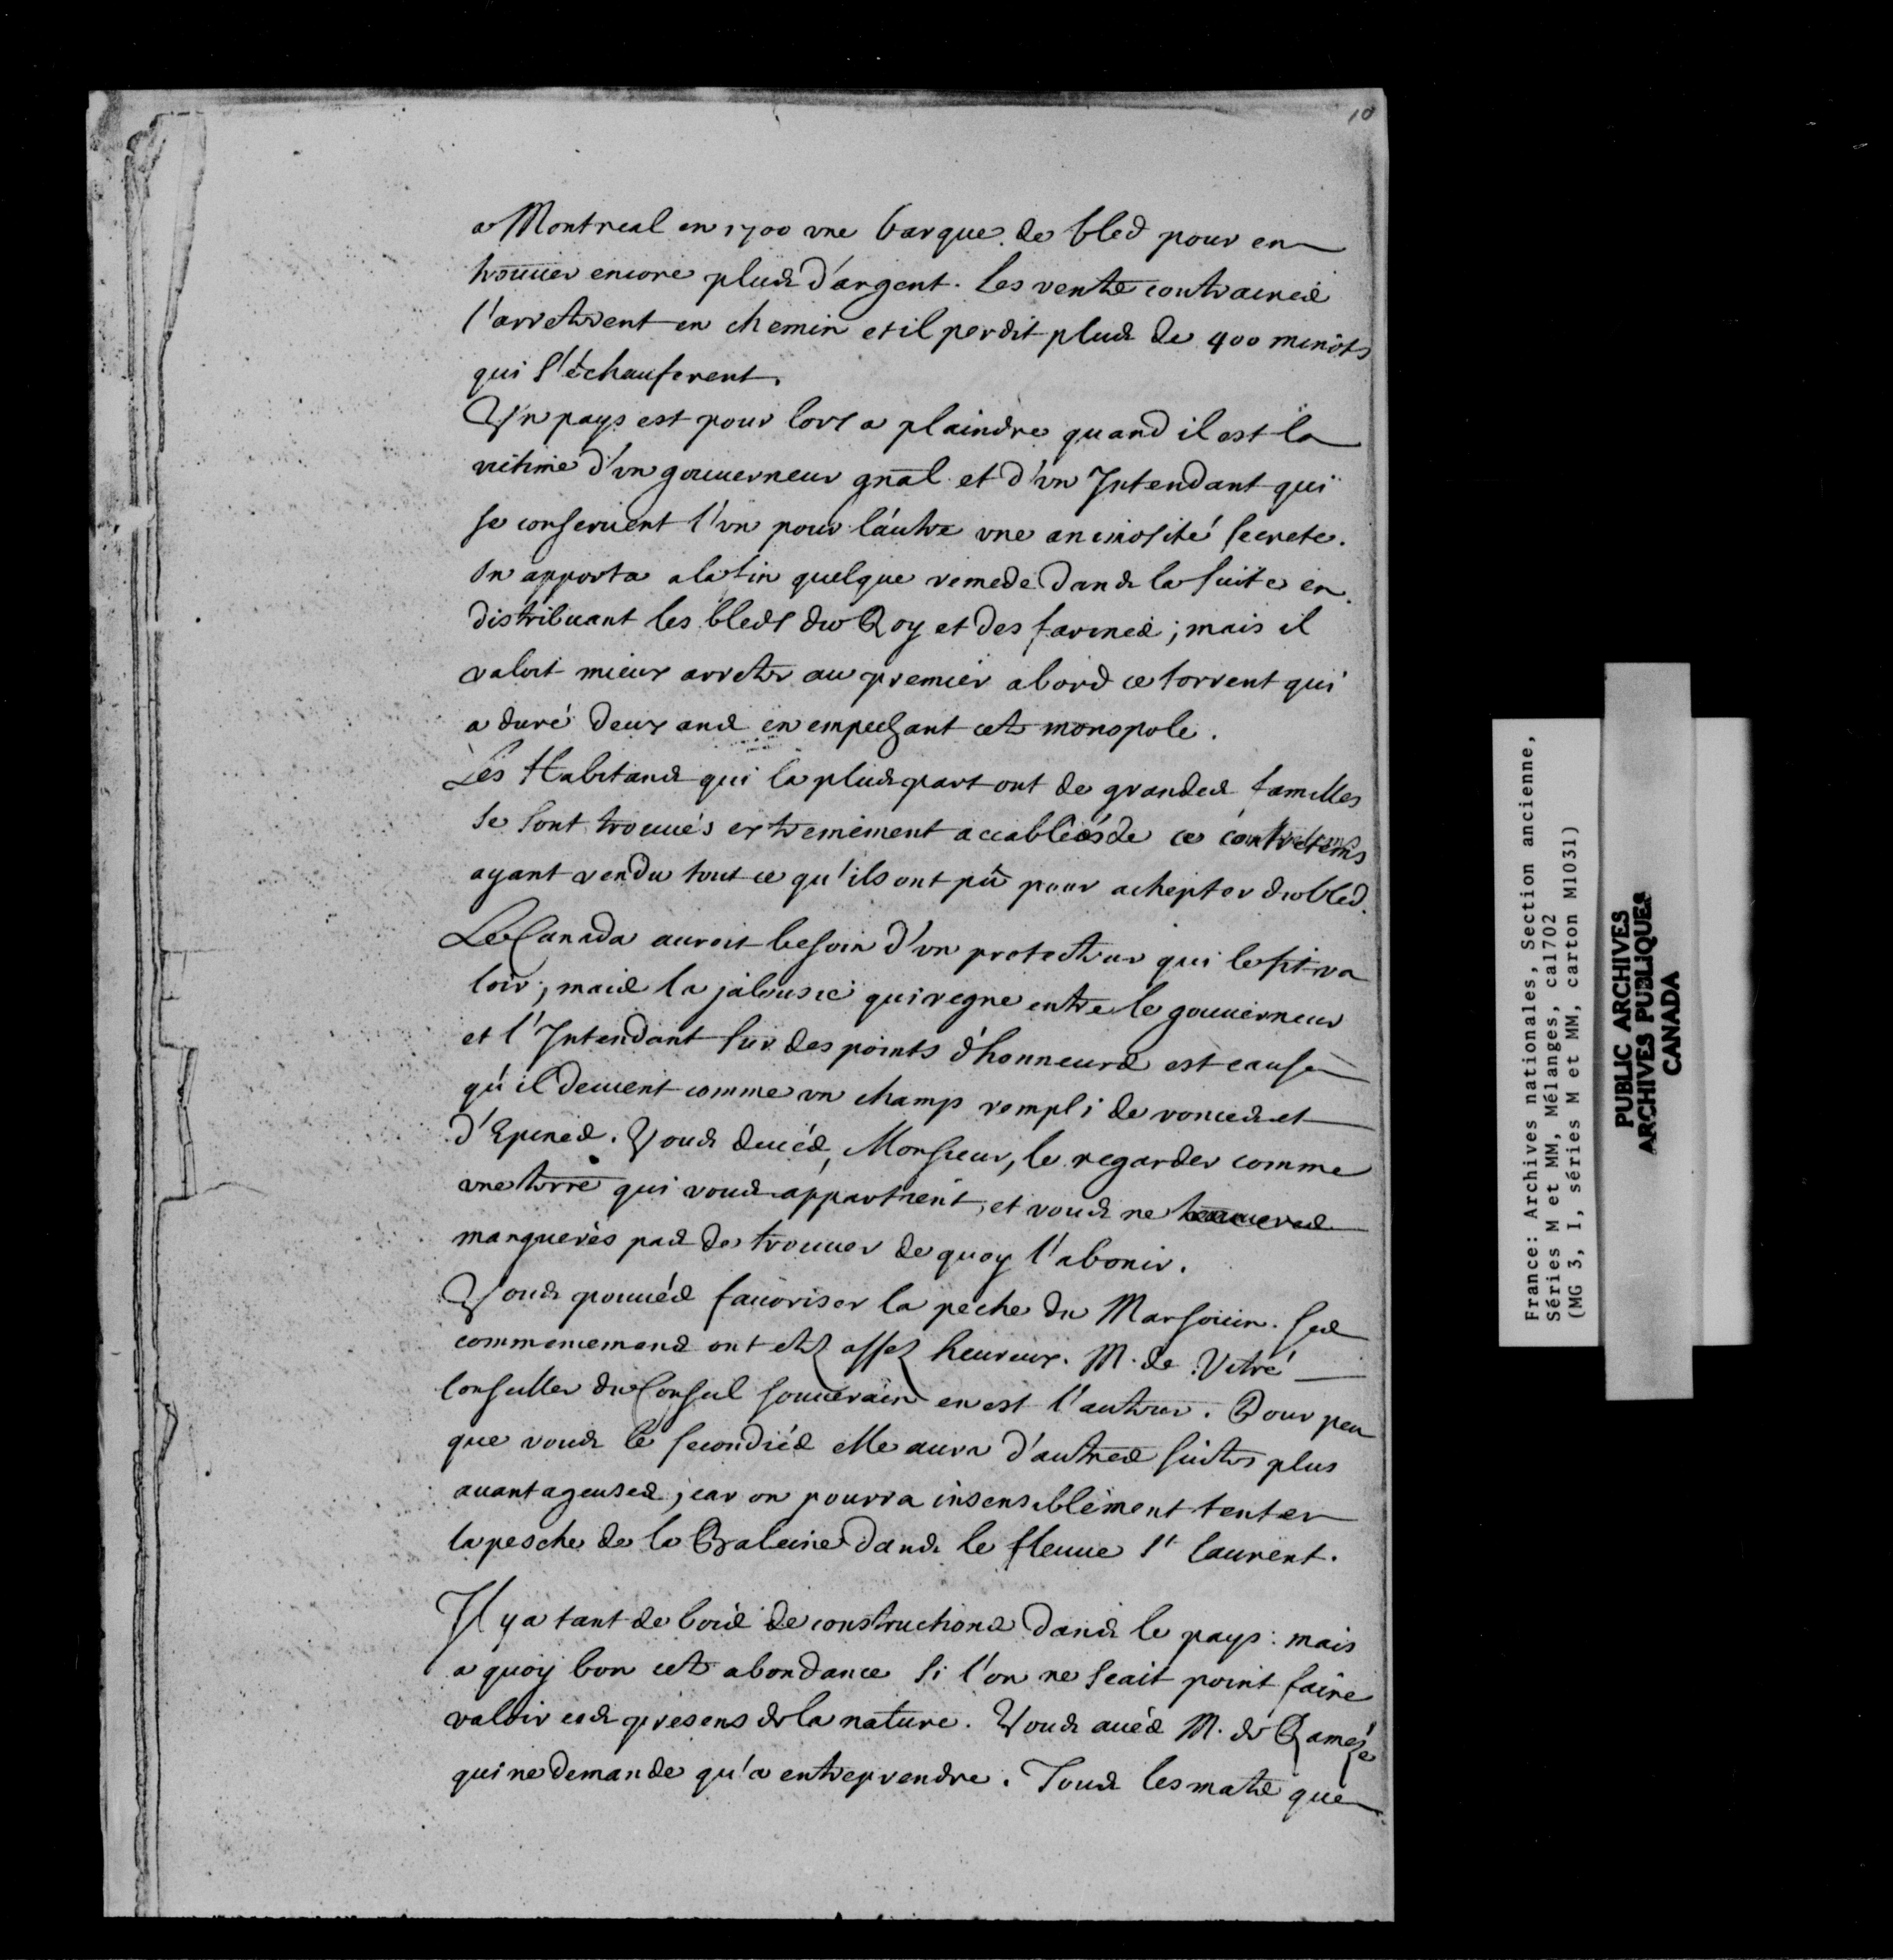 10
a Montreal en 1700 vne barque de bled pour en
trouuer encore plus d'argent. Les vents contraires
l'arreterent en chemin et il perdit plus de 400 minots
qui s'échauferent.
Vn pays est pour lors a plaindre quand il est la
victime d'vn gouuerneur gnal et d'vn Intendant qui
se conseruent l'vn pour l'autre vne animosité secrete.
On apporta a la fin quelque remede dans la suite en
distribuant les bleds du Roy et des farines ; mais il
valoit mieux arreter au premier abord ce torrent qui
a duré deux ans en empechant cet monopole.
Les Habitans qui la pluspart ont de grandes familles
se sont trouués extremement accablés de ce contretems
ayant vendu tout ce qu'ils ont pû pour achepter du bled.
Le Canada auroit besoin d'vn protecteur qui le fit va
loir ; mais la jalousie qui regne entre le gouuerneur
et l'Intendant sur des points d'honneurs est cause
qu'il deuient comme vn champ rempli de ronces et
d'Epines. Vous deués, Monsieur, le regarder comme
vne terre qui vous appartient, et vous ne
manquerés pas de trouuer de quoy l'abonir.
Vous pouués fauoriser la peche du Marsouin. Ses
commencemens ont etez assez heureux. M. de Vitré
Conseiller du Conseil souuerain en est l'auteur. Pour peu
que vous le secondiés elle aura d'autres suites plus
auantageuses, car on pourra insensiblement tenter
la pesche de la Baleine dans le fleuue St Laurent.
Il y a tant de bois de constructions dans le pays : mais
a quoy bon cet abondance si l'on ne scait point faire
valoir ces presens de la nature. Vous aués M. de Ramezé
qui ne demande qu'a entreprendre. Tous les mats que
France: Archives nationales, Section ancienne,
Séries M et MM, Mélanges, ca1702
(MG 3, I, séries M et MM, carton M1031)
PUBLIC ARCHIVES
ARCHIVES PUBLIQUES
CANADA